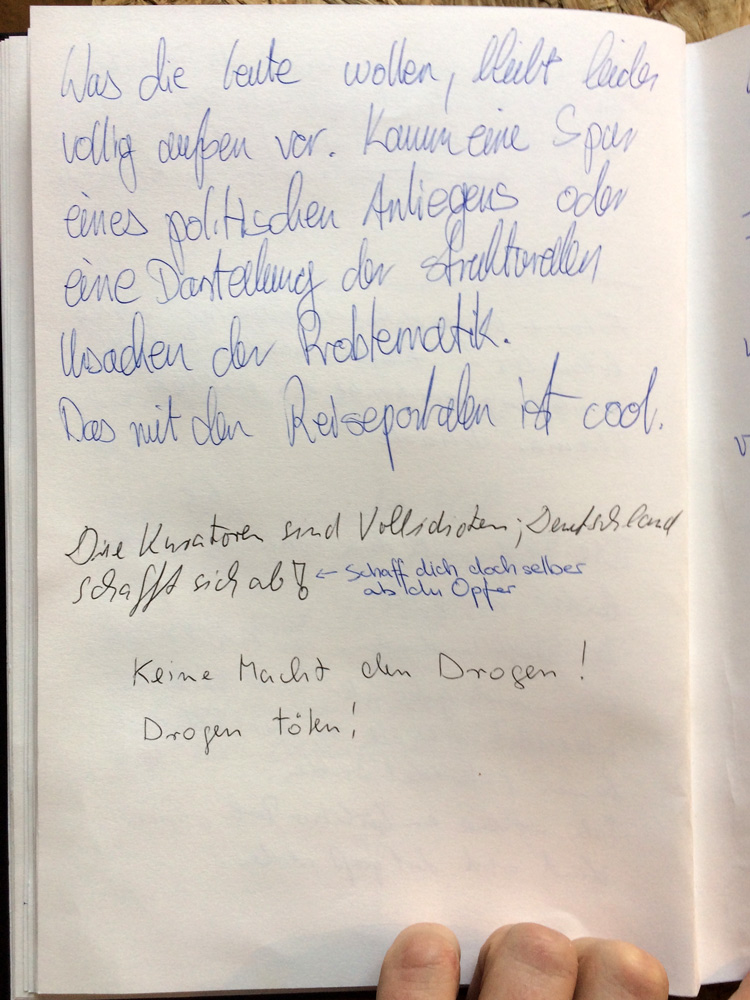 Was die Leute wollen, bleibt leider
völlig außen vor. Kaum eine Spur
eines politischen Anliegens oder
eine Darstellung der strukturellen
Ursachen der Problematik.
Das mit den Reiseportalen ist cool.
Die Kuratoren sind Vollidioten; Deutschland
schafft sich ab!
← Schaff dich doch selber
ab du Opfer
Keine Macht den Drogen!
Drogen töten!